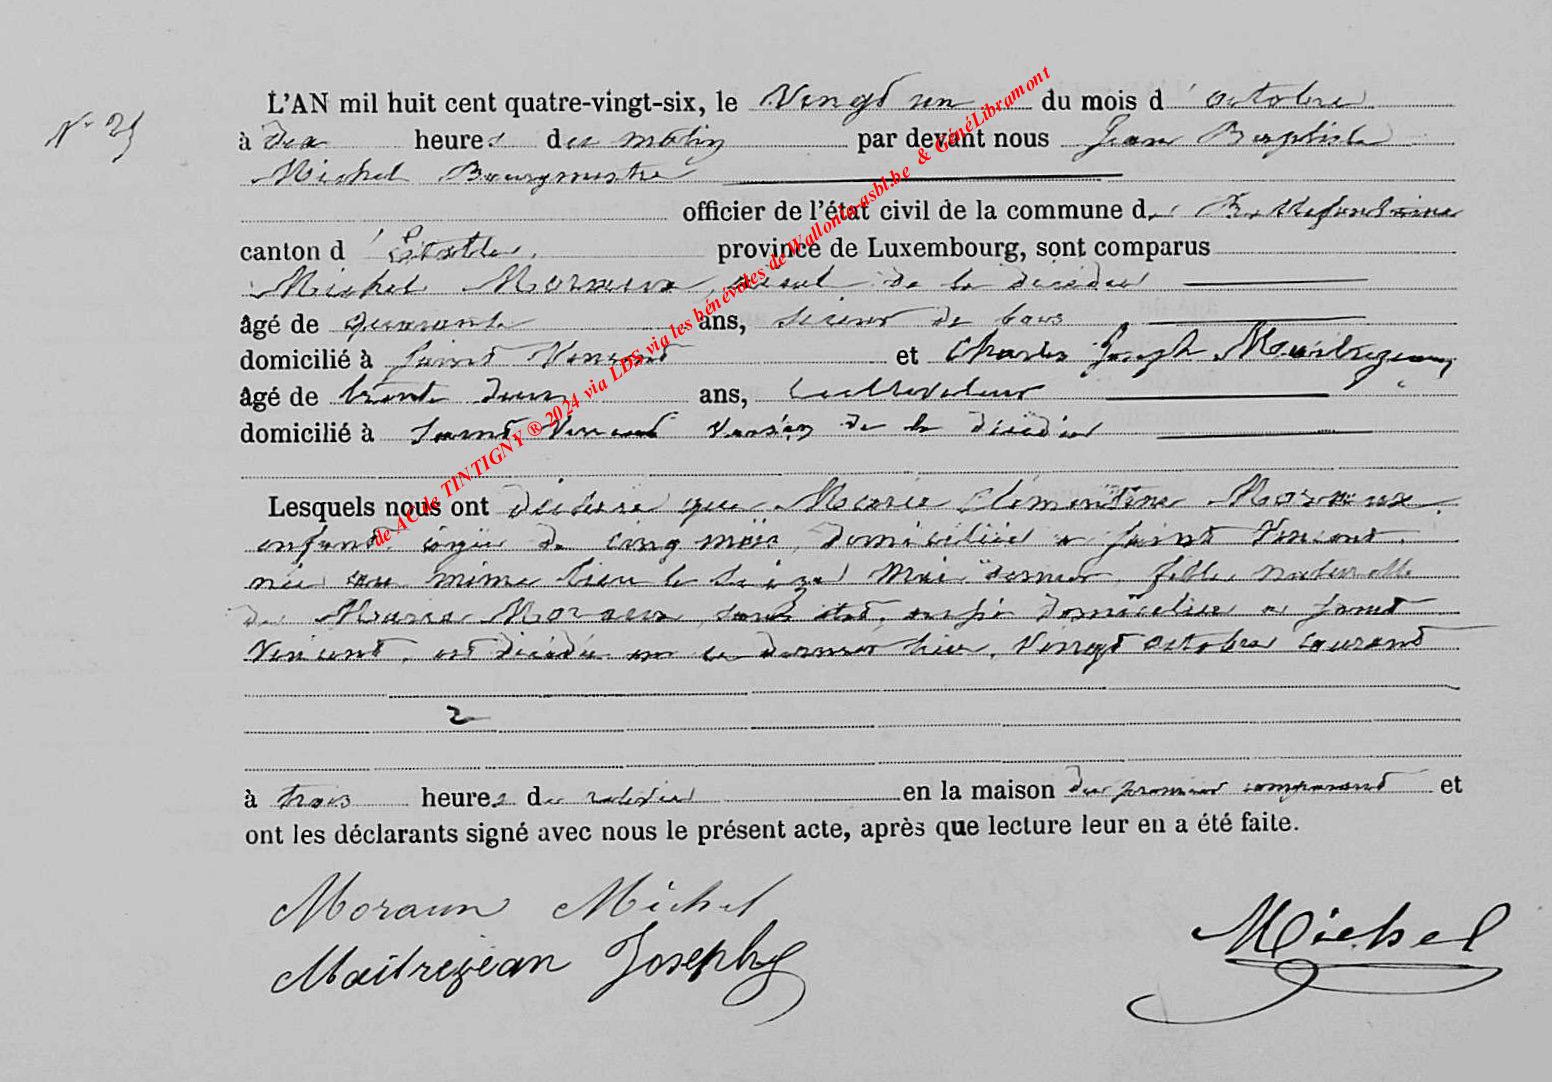 N° 25
L'AN mil huit cent quatre-vingt-six, le Vingt un du mois d'octobre
à dix heures du matin par devant nous Jean Baptiste
Michel Bourgmestre
officier de l'état civil de la commune de Bellefontaine
canton d'Etalle, province de Luxembourg, sont comparus
Michel Moraux, aieul de la décédée
âgé de quarante ans, scieur de bois
domicilié à Saint Vincent et Charles Joseph Maitrejean,
âgé de trente deux ans, cultivateur
domicilié à Saint Vincent voisin de la décédée
Lesquels nous ont déclaré que Marie Clémentine Moraux,
enfant, âgée de cinq mois, domiciliée à Saint Vincent,
née au même lieu le seize Mai dernier, fille naturelle
de Marie Moraux, sans état, aussi domiciliée à Saint
Vincent, est décédée en ce dernier lieu, Vingt octobre courant
2
à trois heures de relevée en la maison du premier comparant et
ont les déclarants signé avec nous le présent acte, après que lecture leur en a été faite.
Moraux Michel
Maitrejean Joseph
Michel
de AC de TINTIGNY ® 2024 via LDS via les bénévoles de Wallonia-asbl.be & GénéLibramont